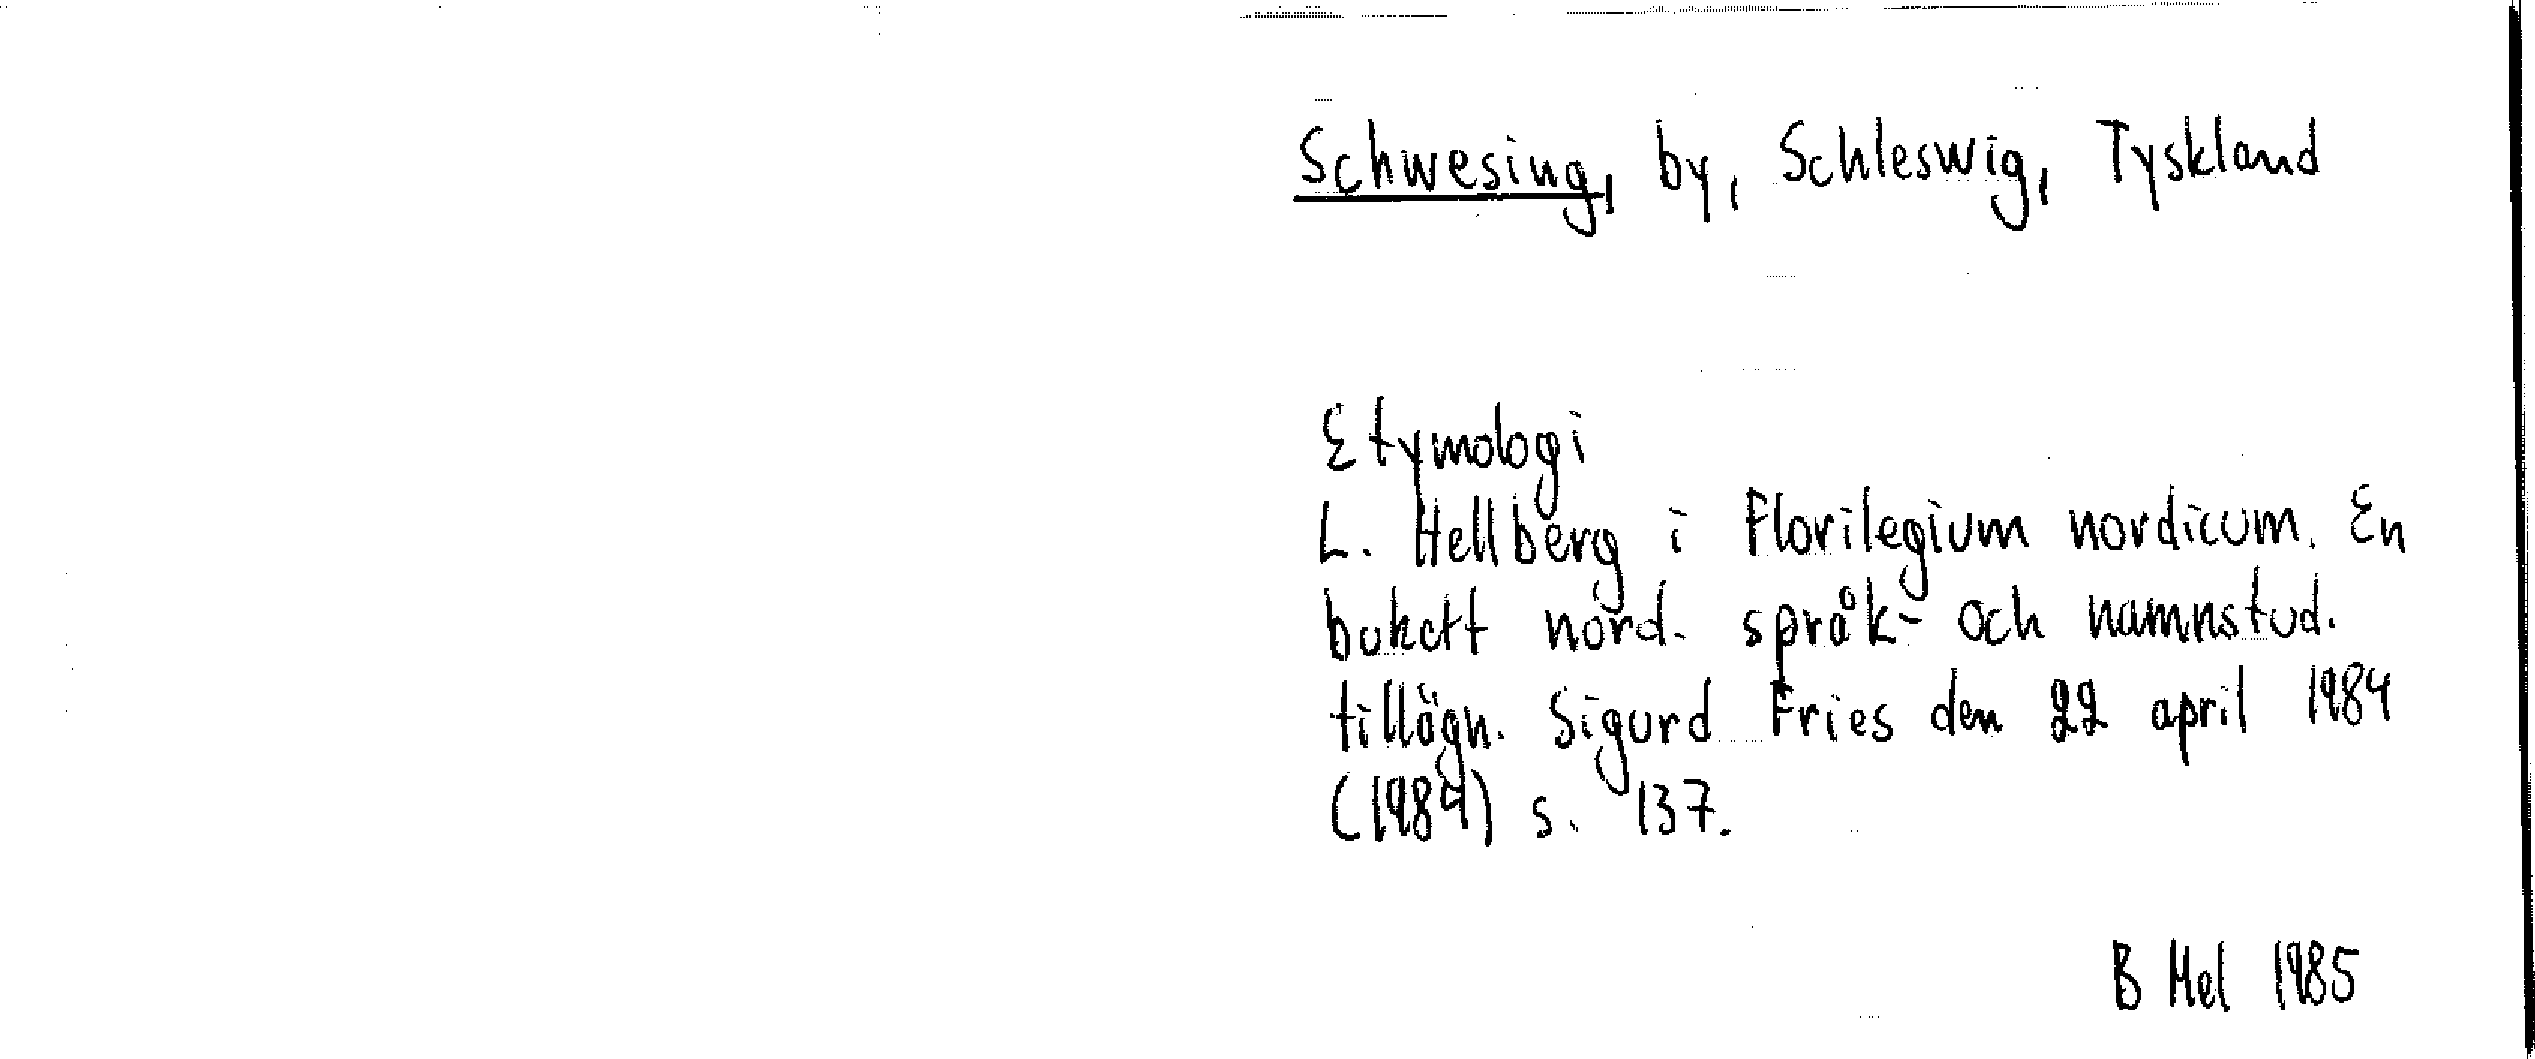 Schwesing, by, Schleswig, Tyskland
Etymologi
L. Hellberg i Florilegium nordicum. En
bukett nord. språk- och namnstud.
tillägn. Sigurd Fries den 22 april 1984
(1984) s. 137.
B Mel 1985